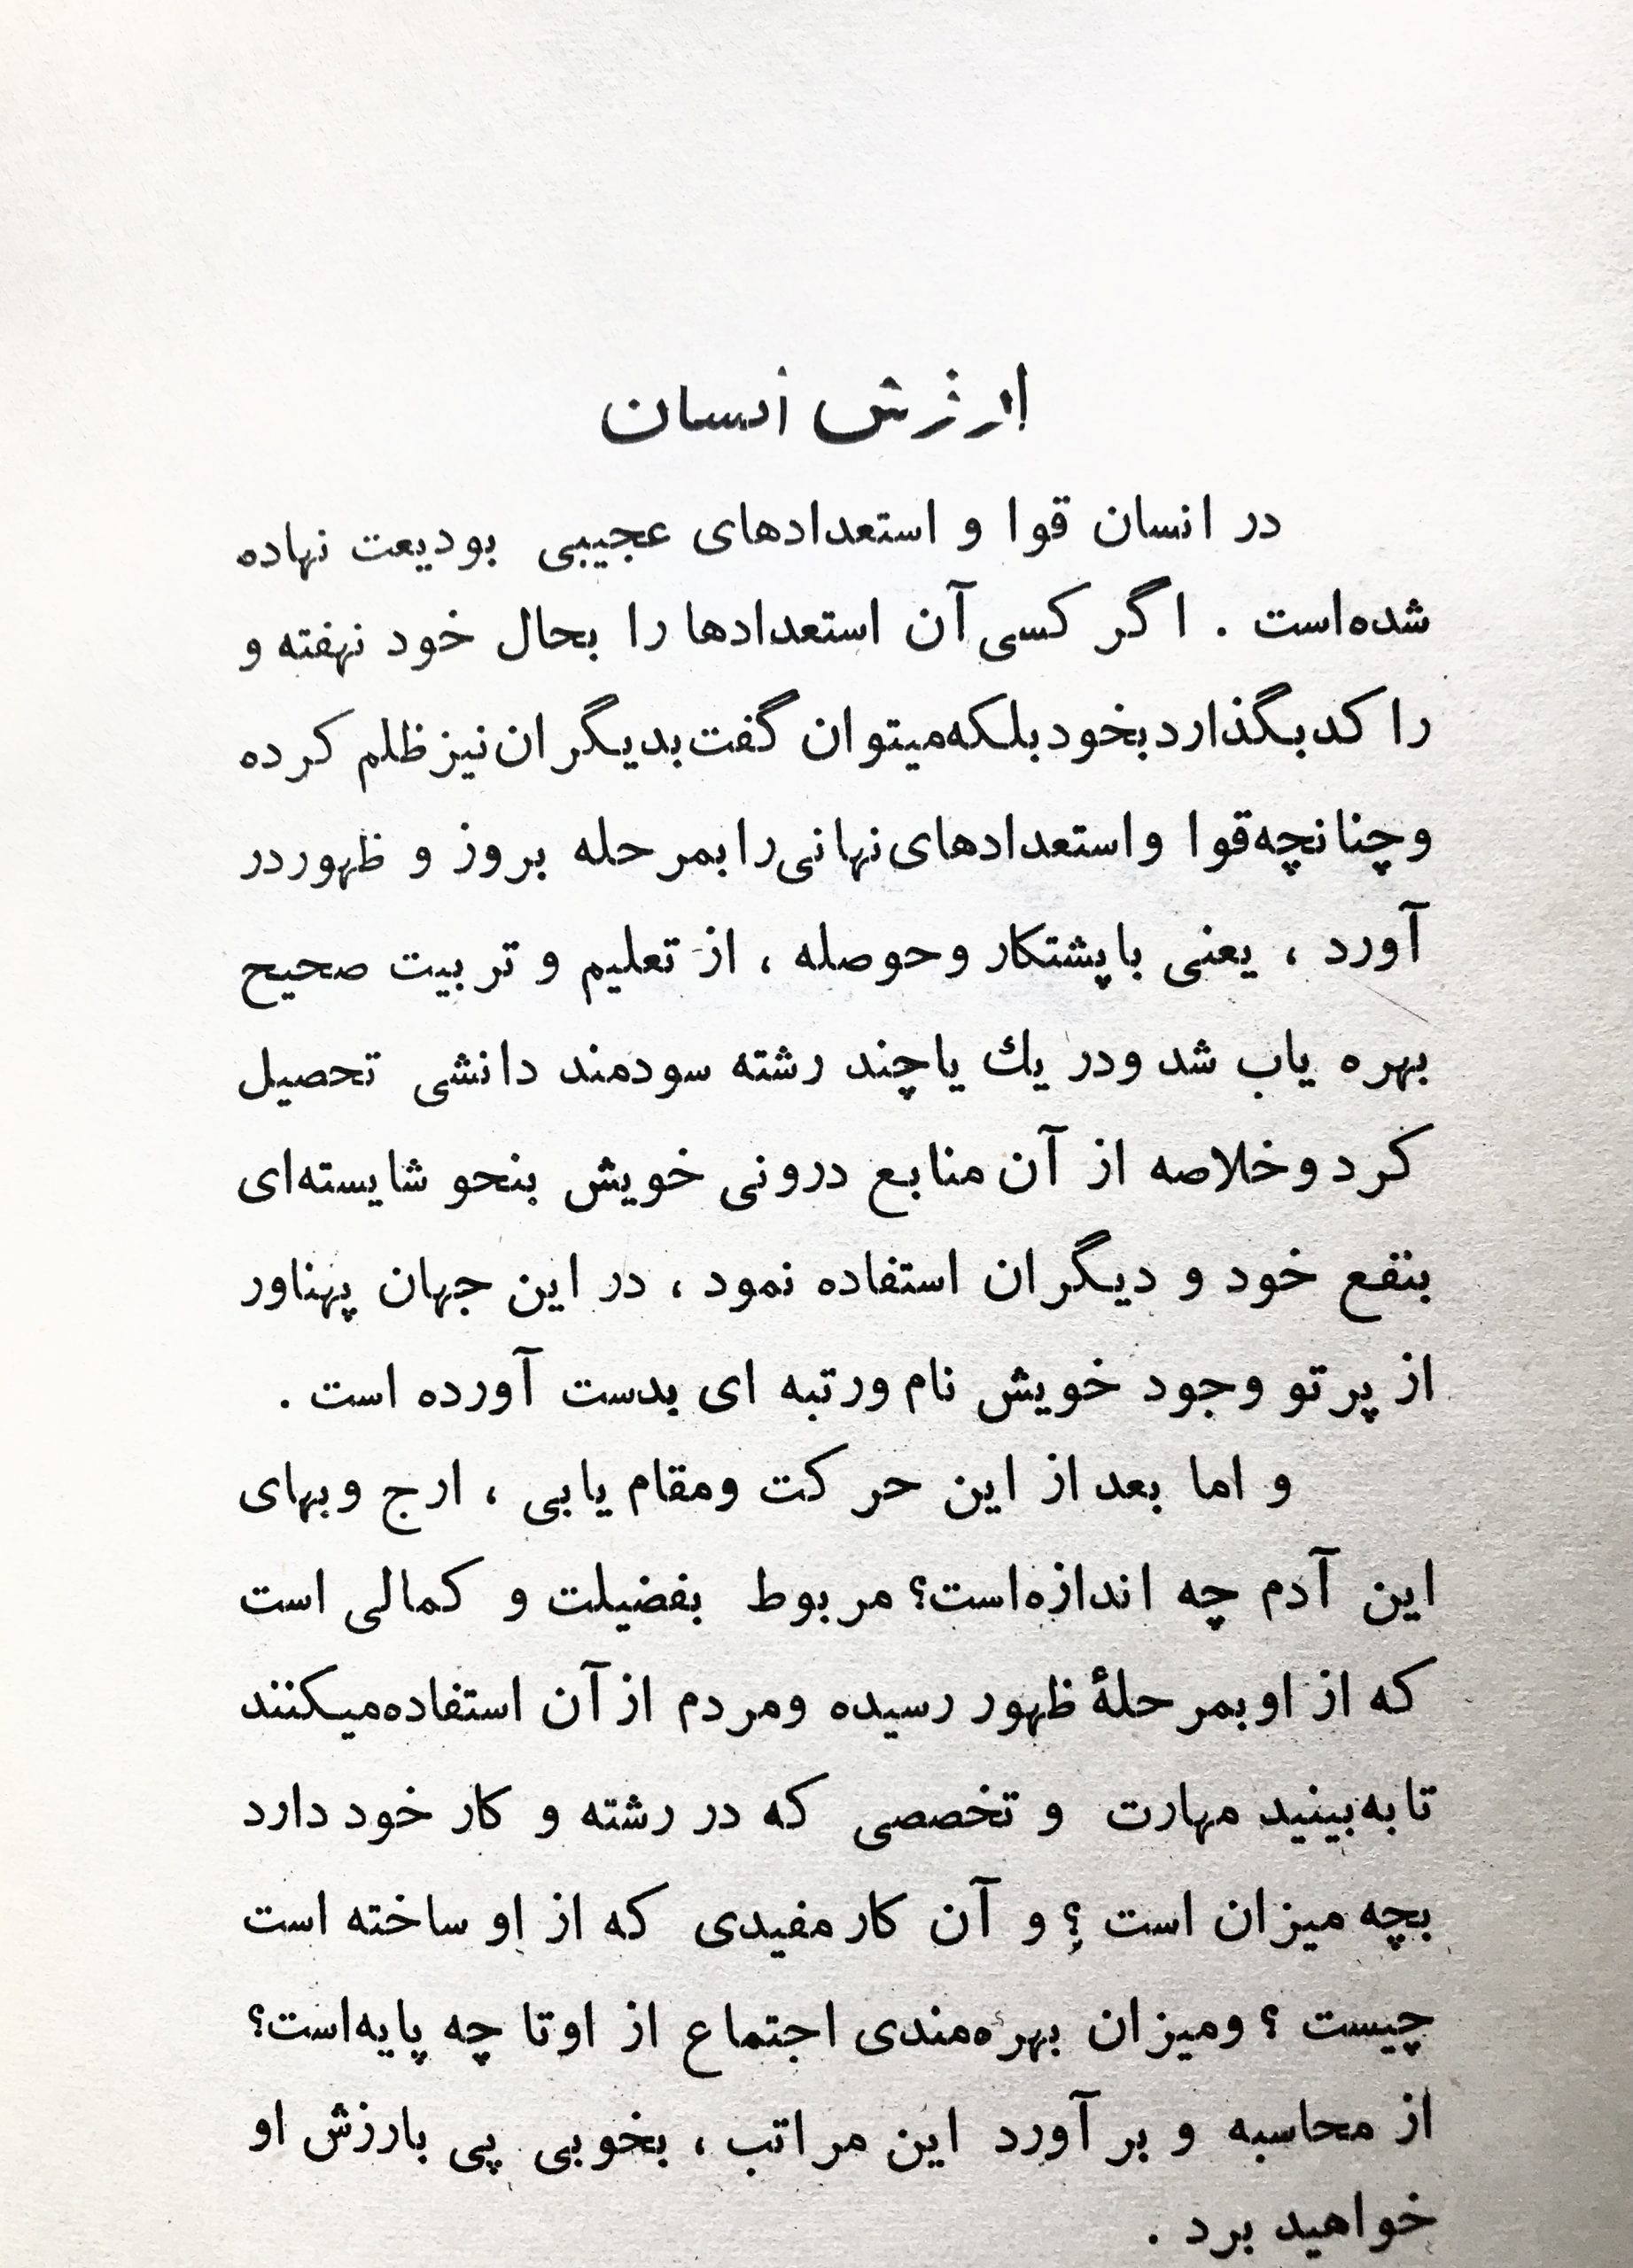 ارزش انسان
در انسان قوا و استعدادهای عجیبی بودیعت نهاده
شده‌است . اگر کسی آن استعدادها را بحال خود نهفته و
را کد بگذارد بخود بلکه میتوان گفت بدیگران نیز ظلم کرده
و چنانچه قوا و استعدادهای نهانی را بمرحله بروز و ظهور در
آورد ، یعنی با پشتکار و حوصله ، از تعلیم و تربیت صحیح
بهره یاب شد و در یك یا چند رشته سودمند دانشی تحصیل
کرد و خلاصه از آن منابع درونی خویش بنحو شایسته‌ای
بنفع خود و دیگران استفاده نمود ، در این جهان پهناور
از پرتو وجود خویش نام و رتبه ای بدست آورده است .
و اما بعد از این حرکت و مقام یابی ، ارج و بهای
این آدم چه اندازه‌است؟ مربوط بفضیلت و کمالی است
که از او بمرحلهٔ ظهور رسیده و مردم از آن استفاده میکنند
تا به‌بینید مهارت و تخصصی که در رشته و کار خود دارد
بچه میزان است ؟ و آن کار مفیدی که از او ساخته است
چیست ؟ و میزان بهره‌مندی اجتماع از او تا چه پایه‌است؟
از محاسبه و بر آورد این مراتب ، بخوبی پی بارزش او
خواهید برد .